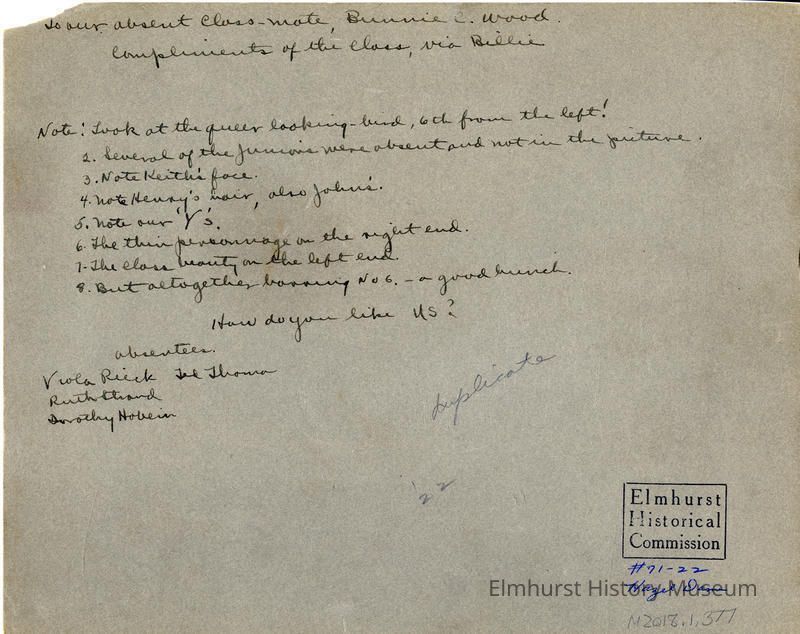 To our absent Class-mate, Bunnie C. Wood.
Compliments of the Class, via Billie
Note: Look at the queer looking-bird, 6th from the left!
2. Several of the Juniors were absent and not in the picture.
3. Note Keith's face.
4. Note Henry's hair, also John's.
5. Note our 'Y's.
6. The thin personnage on the right end.
7. The class beauty on the left end.
8. But altogether barring No 6. - a good bunch.
How do you like US?
absentees.
Viola Rieck Thoma
Ruth Strand
Dorothy Hobein
Duplicate
'22
Elmhurst
Historical
Commission
#71-22
Hazel
Elmhurst History Museum
M2018.1.377